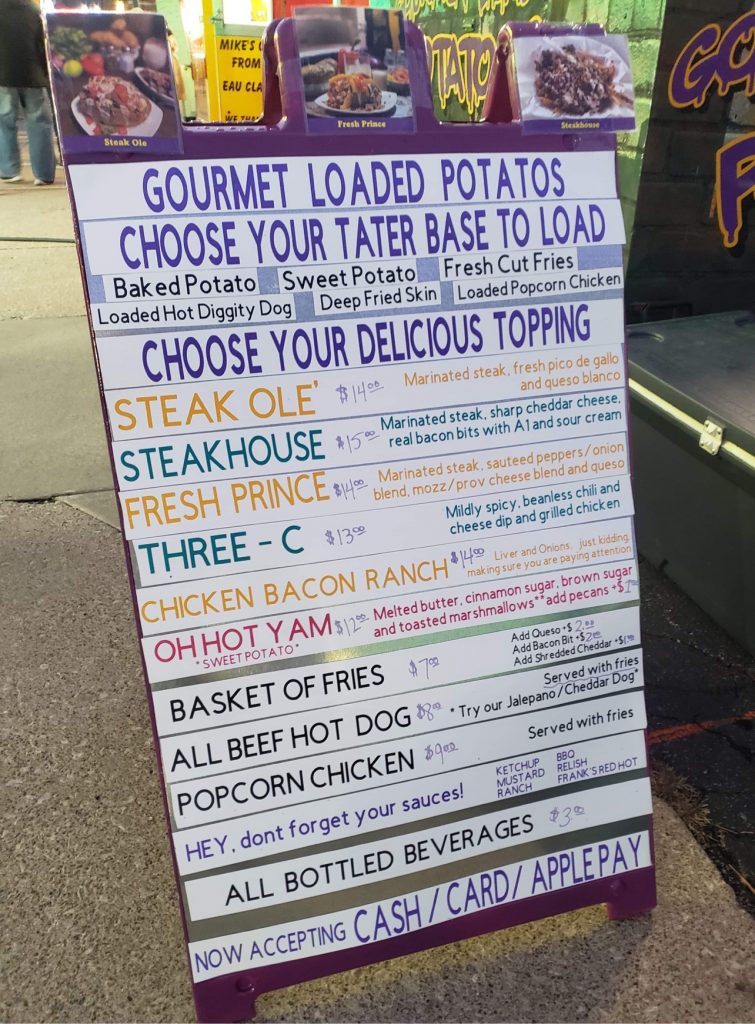 MIKE'S
FROM
EAU CLA
Steak Ole
Fresh Prince
Steakhouse
GOURMET LOADED POTATOS
CHOOSE YOUR TATER BASE TO LOAD
Baked Potato Sweet Potato Fresh Cut Fries
Loaded Hot Diggity Dog Deep Fried Skin Loaded Popcorn Chicken
CHOOSE YOUR DELICIOUS TOPPING
STEAK OLE' $14.00 Marinated steak, fresh pico de gallo
and queso blanco
STEAKHOUSE $15.00 Marinated steak, sharp cheddar cheese,
real bacon bits with A1 and sour cream
FRESH PRINCE $14.00 Marinated steak, sauteed peppers/onion
blend, mozz/prov cheese blend and queso
THREE - C $13.00 Mildly spicy, beanless chili and
cheese dip and grilled chicken
CHICKEN BACON RANCH $14.00 Liver and Onions, just kidding,
making sure you are paying attention
OH HOT YAM $12.00 Melted butter, cinnamon sugar, brown sugar
*SWEET POTATO* and toasted marshmallows **add pecans +$1.00
BASKET OF FRIES $7.00 Add Queso +$ 2.00
Add Bacon Bit +$2.00
Add Shredded Cheddar +$1.00
ALL BEEF HOT DOG $8.00 Served with fries
*Try our Jalepano/Cheddar Dog*
POPCORN CHICKEN $9.00 Served with fries
HEY, dont forget your sauces! KETCHUP BBQ
MUSTARD RELISH
RANCH FRANK'S RED HOT
ALL BOTTLED BEVERAGES $3.00
NOW ACCEPTING CASH / CARD / APPLE PAY